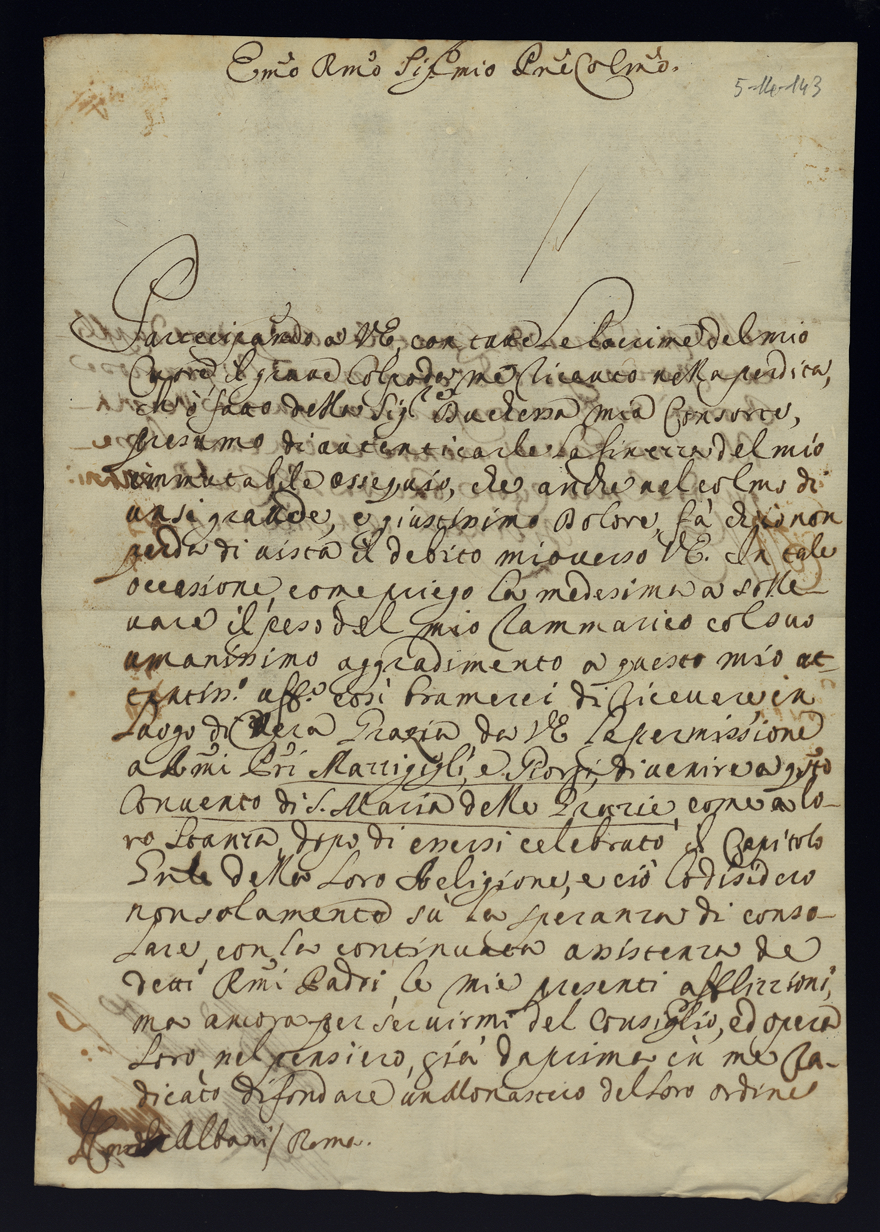 Em̃o Rm̃o Sig.r mio Prõe Colm̃o.
5-14-143
Partecipando a VE, con tutte le lacrime del mio
Cuore il grave Colpo da me ricevuto nella perdita,
che ò fatto della Sig.ra Duchessa mia Consorte,
presumo di autenticarle la sincerità del mio
immutabile ossequio, che anche nel colmo di
un si grande, e giustissimo Dolore, fà ch'io non
perda di vista il debito mio verso VE. In tale
occasione, come priego la medesima a solle-
vare il peso del mio rammarico col suo
umanissimo aggradimento a questo mio at-
tentiss.o uff.o così bramerei di ricevere in
luogo di vera Grazia da VE la permissione
a Rm̃i Pri Marzigigli, e Giorgi, di venire a q̃sto
Convento di S. Maria delle Grazie, come a lo-
ro stanza, dopo di essersi celebrato il Capitolo
Gnle della loro Religione, e ciò lo disidero
non solamente sù la speranza di conso-
lare, con la continuata assistenza de
detti Rm̃i Padri le mie presenti afflizzioni,
ma ancora per servirmi del Consiglio, ed opera
loro, nel pensiero, già da prima in me ra-
dicato di fondare un Monastero del loro ordine
Albani / Roma.